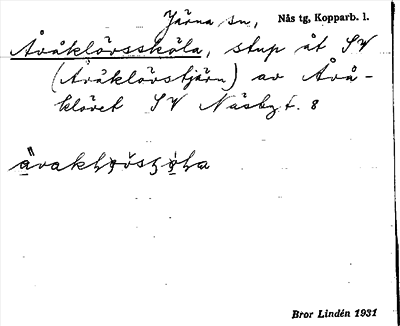 Järna sn, Nås tg, Kopparb. l.
Åråklövssköla, stup åt SV
(Åråklövstjärn) av Årå-
klövet SV Näsby f. 8
Bror Lindén 1931